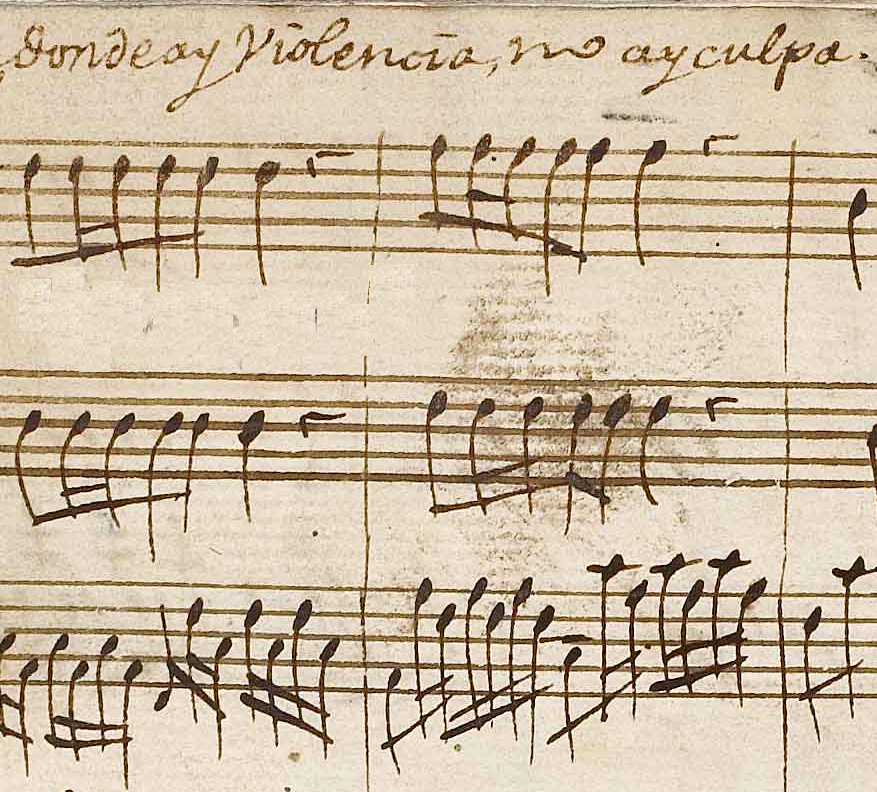 , donde ay Violencia, no ay culpa.